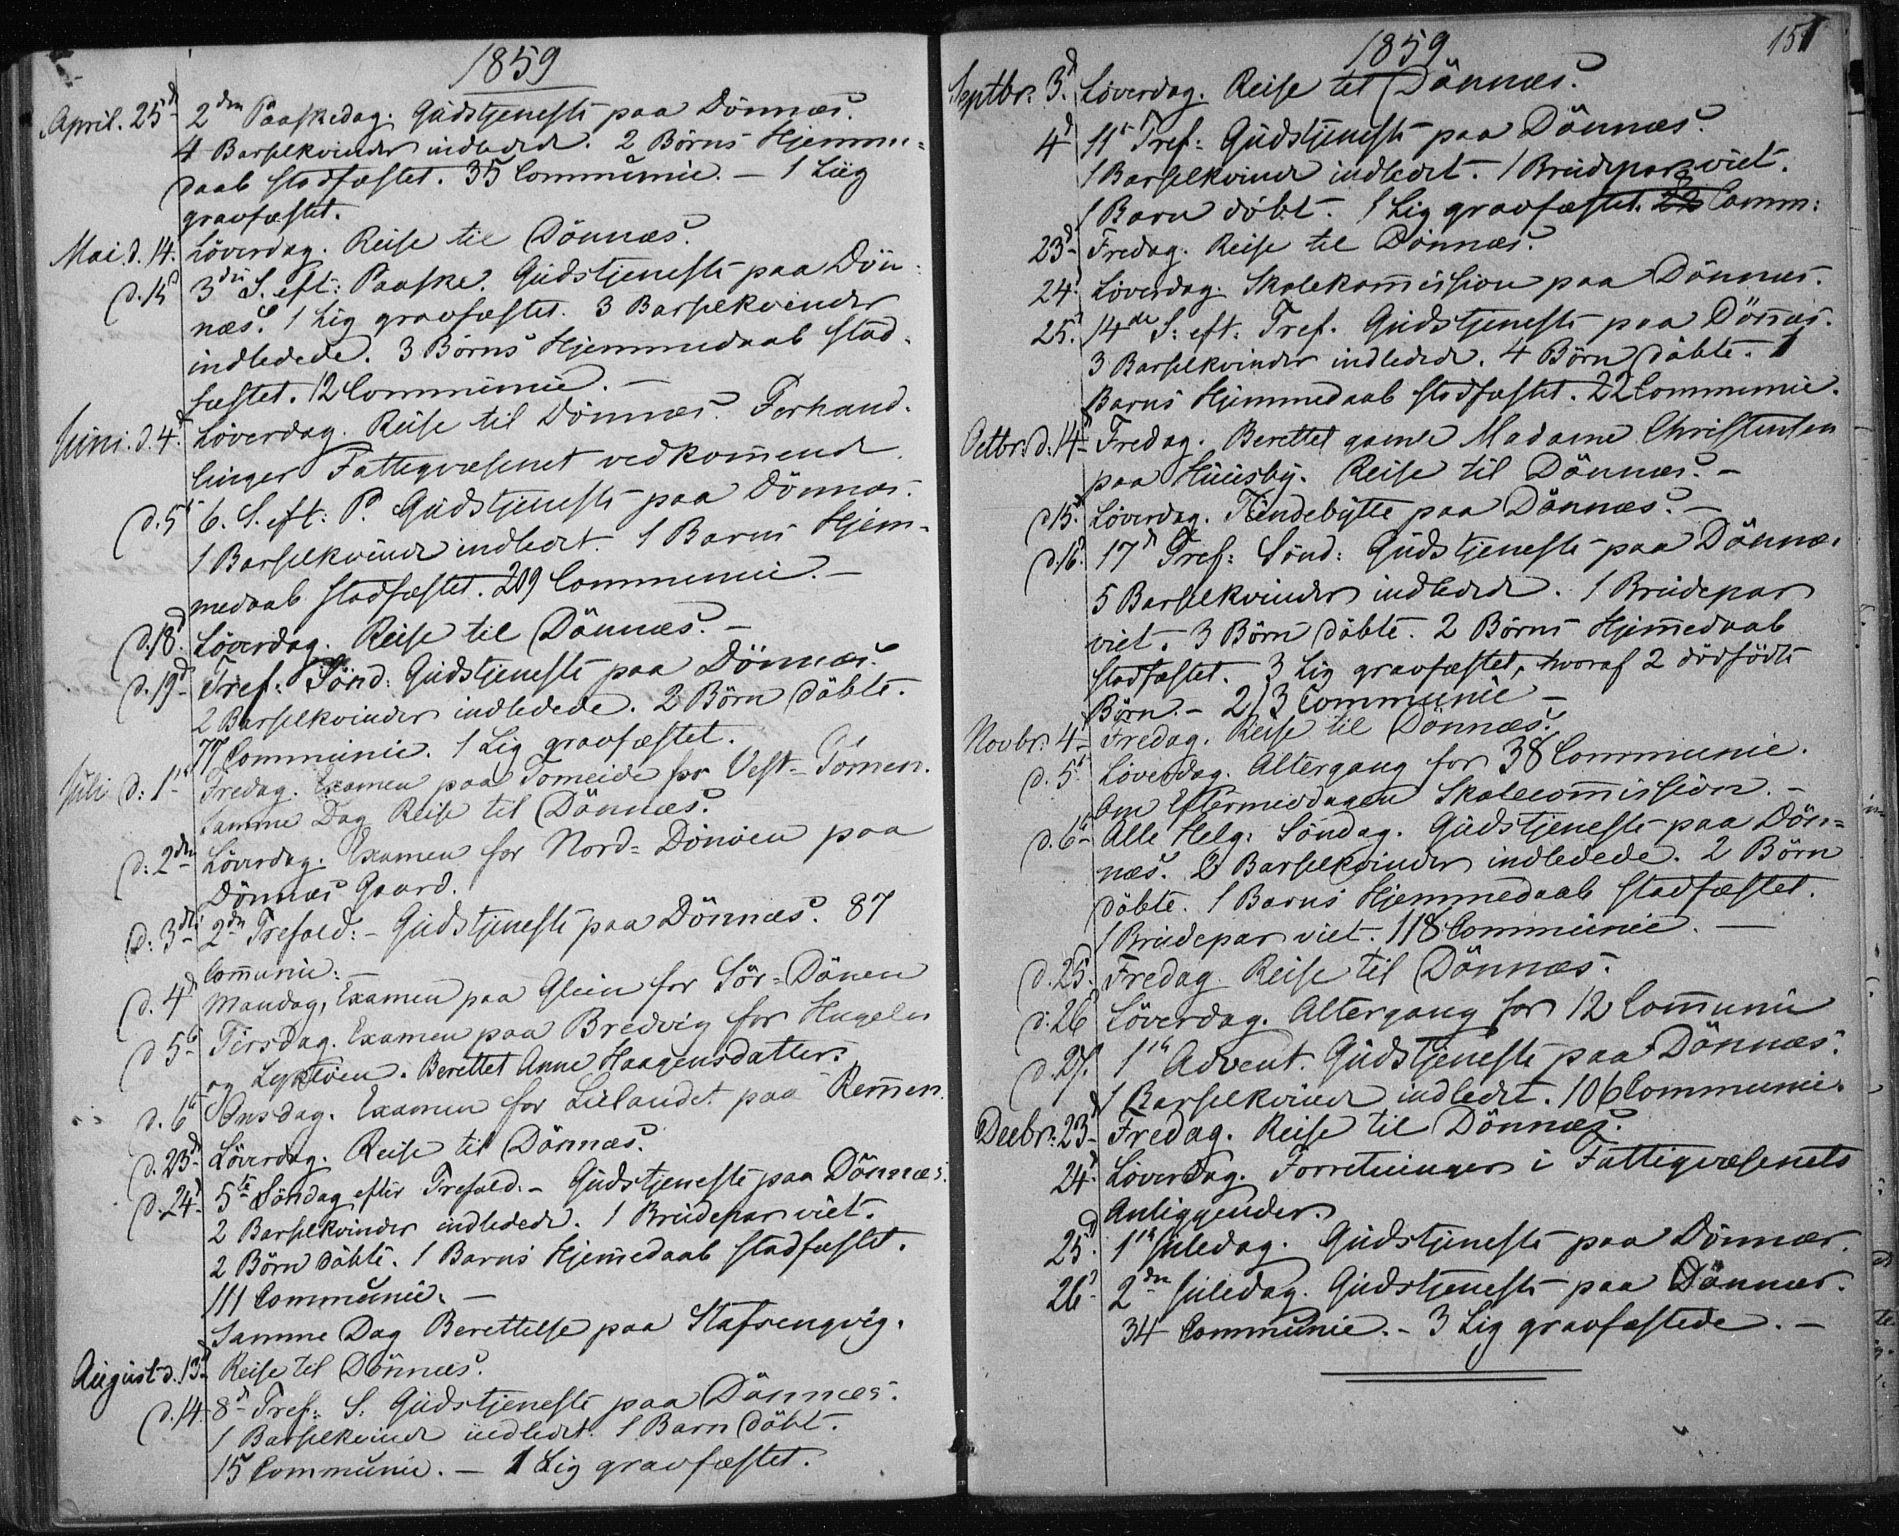 1859
April. 25d 2den Paaskedag. Gudstjeneste paa Dönnæs.
4 Barselkvinder indledede. 2 Börns Hjemme-
daab stadfæstet. 35 Communic. — 1 Liig
gravfæstet.
Mai. d. 14. Löverdag. Reise til Dönnæs.
d. 15d 3die S. eft: Paaske. Gudstjeneste paa Dön-
næs. 1 Lig gravfæstet. 3 Barselkvinder
indledede. 3 Börns Hjemmedaab stad-
fæstet. 12 Communic. —
Juni. d. 4d Löverdag. Reise til Dönnæs. Forhand-
linger Fattigvæsenet vedkommende.
d. 5 6. S. eft: P. Gudstjeneste paa Dönnæs.
1 Barselkvinde indledet. 1 Barns Hjem-
medaab stadfæstet. 209 Communic. —
d. 18d Löverdag. Reise til Dönnæs. —
d. 19d Tref: Sönd: Gudstjeneste paa Dönnæs.
2 Barselkvinder indledede. 2 Börn döbte.
77 Communic. 1 Lig gravfæstet.
Juli d: 1ste Fredag. Examen paa Tomeide for Vest-Tomen.
Samme Dag Reise til Dönnæs.
d: 2den Löverdag. Examen for Nord-Dönöen paa
Dönnæs Gaard.
d: 3die 2den Trefold: — Gudstjeneste paa Dönnæs. 87
Communic: —
d. 4d Mandag, Examen paa Glein for Sör-Dönen
d 5te Tirsdag. Examen paa Bredvig for Hugelen
og Lyktöen. Berettet Anne Haagensdatter.
d. 6te Onsdag. Examen for Lilandet paa Remen.
d. 23d Löverdag. Reise til Dönnæs.
d. 24d 5te Söndag efter Trefold. — Gudstjeneste paa Dönnæs.
2 Barselkvinder indledede. 1 Brudepar viet.
2 Börn döbte. 1 Barns Hjemmedaab stadfæstet.
111 Communic. —
Samme Dag Berettelse paa Stafsengvig.
August d. 13d Reise til Dönnæs.
d. 14. 8d Tref: S: Gudstjeneste paa Dönnæs.
1 Barselkvinde indledet. 1 Barn döbt.
15 Communic. — 1 Lig gravfæstet.
151
1859
Septbr. 3d Löverdag. Reise til Dönnæs.
4d 11te Tref: Gudstjeneste paa Dönnæs.
1 Barselkvinde indledet. 1 Brudepar viet.
1 Barn döbt. 1 Lig gravfæstet. Comm:
23d Fredag. Reise til Dönnæs.
24. Löverdag. Skolekommission paa Dönnæs.
25. 14de S: eft. Tref. Gudstjeneste paa Dönnæs.
3 Barselkvinder indledede. 4 Börn döbte. 1
Barns Hjemmedaab stadfæstet. 22 Communic.
Octbr. d. 14d Fredag. Berettet gamle Madame Christensen
paa Huusby. Reise til Dönnæs. —
d 15. Löverdag. Tiendebytte paa Dönnæs. —
d. 16. 17d Tref: Sönd: Gudstjeneste paa Dönnæs
5 Barselkvinder indledede. 1 Brudepar
viet. 3 Börn döbte. 2 Börns Hjemmedaab
stadfæstet. 3 Lig gravfæstet, hvoraf 2 dödfödte
Börn. — 213 Communic —
Novbr. 4d Fredag. Reise til Dönnæs.
d. 5te Löverdag. Altergang for 38 Communic.
Om Eftermiddagen Skolecommission. —
d. 6te Alle Helg: Söndag. Gudstjeneste paa Dön-
næs. 2 Barselkvinder indledede. 2 Börn
döbte. 1 Barns Hjemmedaab stadfæstet.
1 Brudepar viet. 118 Communic. —
d. 25. Fredag Reise til Dönnæs.
d. 26 Löverdag. Altergang for 12 Communic
d. 27. 1ste Advent. Gudstjeneste paa Dönnæs.
1 Barselkvinde indledet. 106 Communic.
Decbr. 23d Fredag. Reise til Dönnæs.
24d Löverdag. Forretninger i Fattigvæsenets
Anliggender.
25d 1ste Juledag. Gudstjeneste paa Dönnæs.
26d 2den Juledag. Gudstjeneste paa Dönnæs.
34 Communic. — 3 Lig gravfæstede. —